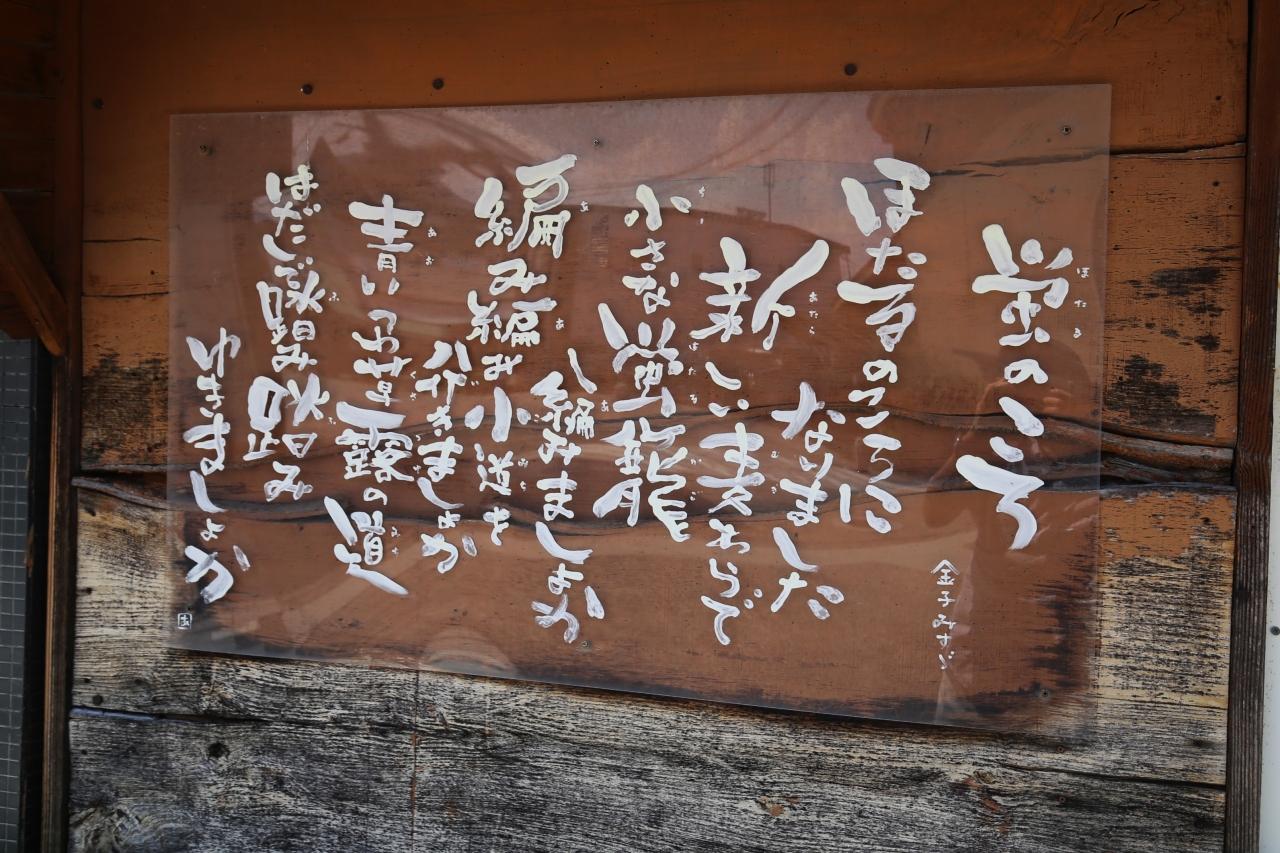 蛍のころ
金子みすゞ
ほたるのころに
なりました
新しい麦わらで
小さな蛍籠
編みましょか
編み編み小道を
行きましょか
青いつゆ草露の道
はだしで踏み踏み
ゆきましょか